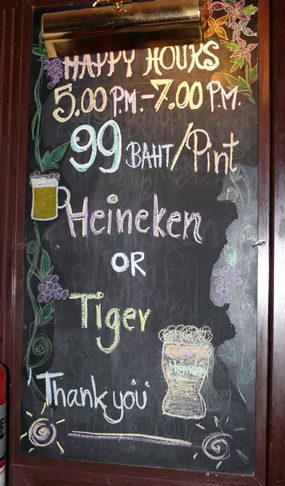 HAPPY HOURS
5.00 P.M.-7.00 P.M.
99 BAHT/Pint
Heineken
OR
Tiger
Thank you